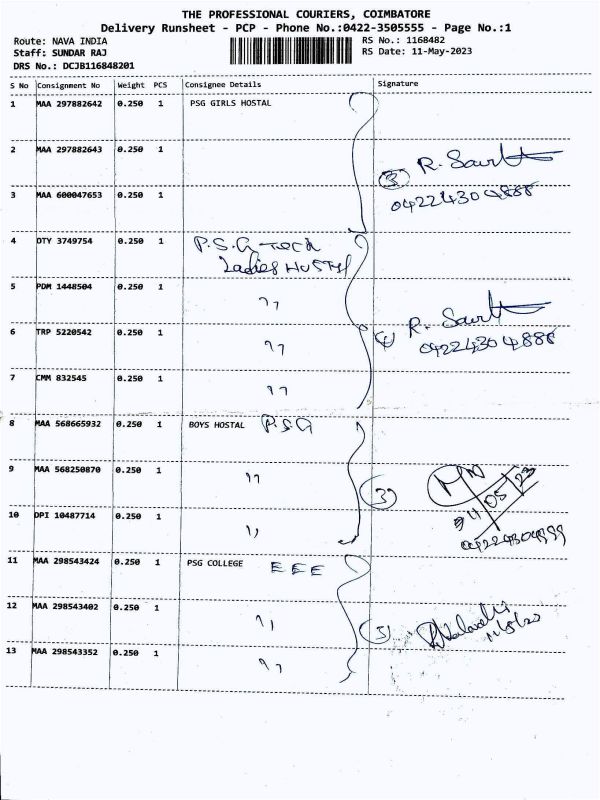 THE PROFESSIONAL COURIERS, COIMBATORE
Delivery Runsheet - PCP - Phone No.:0422-3505555 - Page No.:1
Route: NAVA INDIA
RS No.: 1168482
Staff: SUNDAR RAJ
RS Date: 11-May-2023
DRS No.: DCJB116848201
S No Consignment No Weight PCS Consignee Details Signature
1 MAA 297882642 0.250 1 PSG GIRLS HOSTAL
2 MAA 297882643 0.250 1
(3) R.
3 MAA 600047653 0.250 1
04224304888
4 DTY 3749754 0.250 1 P.S.G Tech
Ladies HOSTEL
5 PDM 1448504 0.250 1 ”
R.
6 TRP 5220542 0.250 1 ”
04224304888
7 CMM 832545 0.250 1 ”
8 MAA 568665932 0.250 1 BOYS HOSTAL P.S.G
9 MAA 568250870 0.250 1 ”
(3)
11/05/23
10 DPI 10487714 0.250 1 ”
11 MAA 298543424 0.250 1 PSG COLLEGE EEE
12 MAA 298543402 0.250 1 ”
13 MAA 298543352 0.250 1 ”